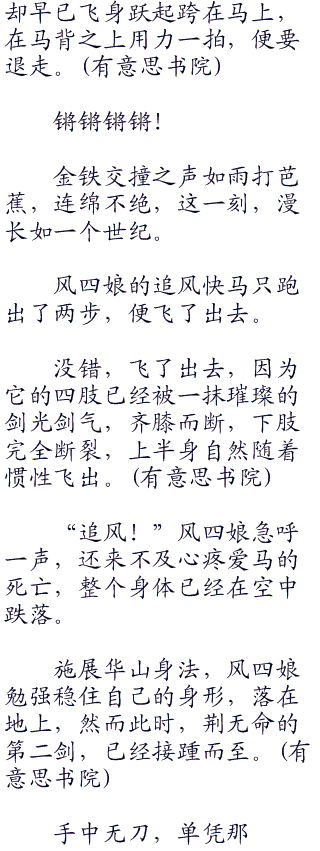 却早已飞身跃起跨在马上，
在马背之上用力一拍，便要
退走。(有意思书院)
锵锵锵锵！
金铁交撞之声如雨打芭
蕉，连绵不绝，这一刻，漫
长如一个世纪。
风四娘的追风快马只跑
出了两步，便飞了出去。
没错，飞了出去，因为
它的四肢已经被一抹璀璨的
剑光剑气，齐膝而断，下肢
完全断裂，上半身自然随着
惯性飞出。(有意思书院)
“追风！”风四娘急呼
一声，还来不及心疼爱马的
死亡，整个身体已经在空中
跌落。
施展华山身法，风四娘
勉强稳住自己的身形，落在
地上，然而此时，荆无命的
第二剑，已经接踵而至。(有
意思书院)
手中无刀，单凭那